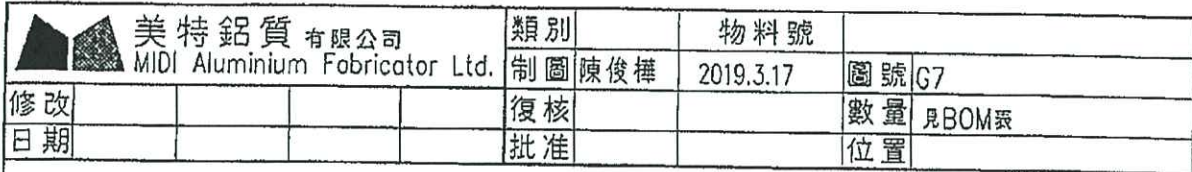 美特鋁質 有限公司
MIDI Aluminium Fabricator Ltd.
類別 物料號
制圖 陳俊樺 2019.3.17 圖號 G7
修改 復核 數量 見BOM表
日期 批准 位置